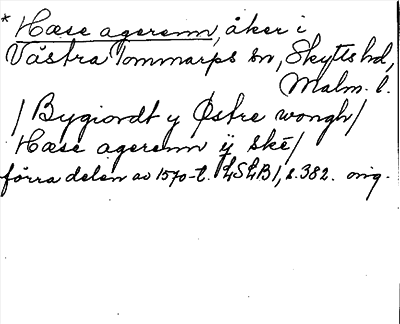 * Hæse agerenn, åker i
Västra Tommarps sn, Skytts hd,
Malm. l.
/ Bygiordt y Østre wongh/
Hæse agerenn ÿ skē/
förra delen av 1570-t. LSLB1, s. 382. orig.